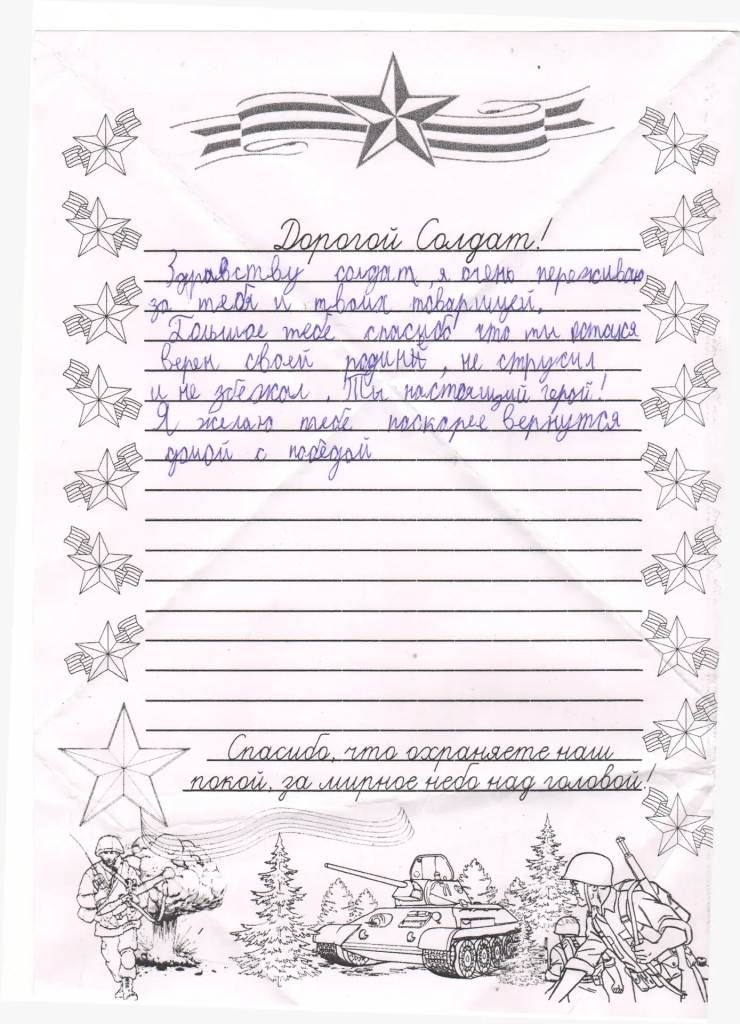 Дорогой Солдат!
Здравству солдат, я очень переживаю
за тебя и твоих товарищей.
Большое тебе спасибо что ты остался
верен своей родине, не струсил
и не збежал. Ты настоящий герой!
Я желаю тебе поскорее вернутся
домой с победой
Спасибо, что охраняете наш
покой, за мирное небо над головой!